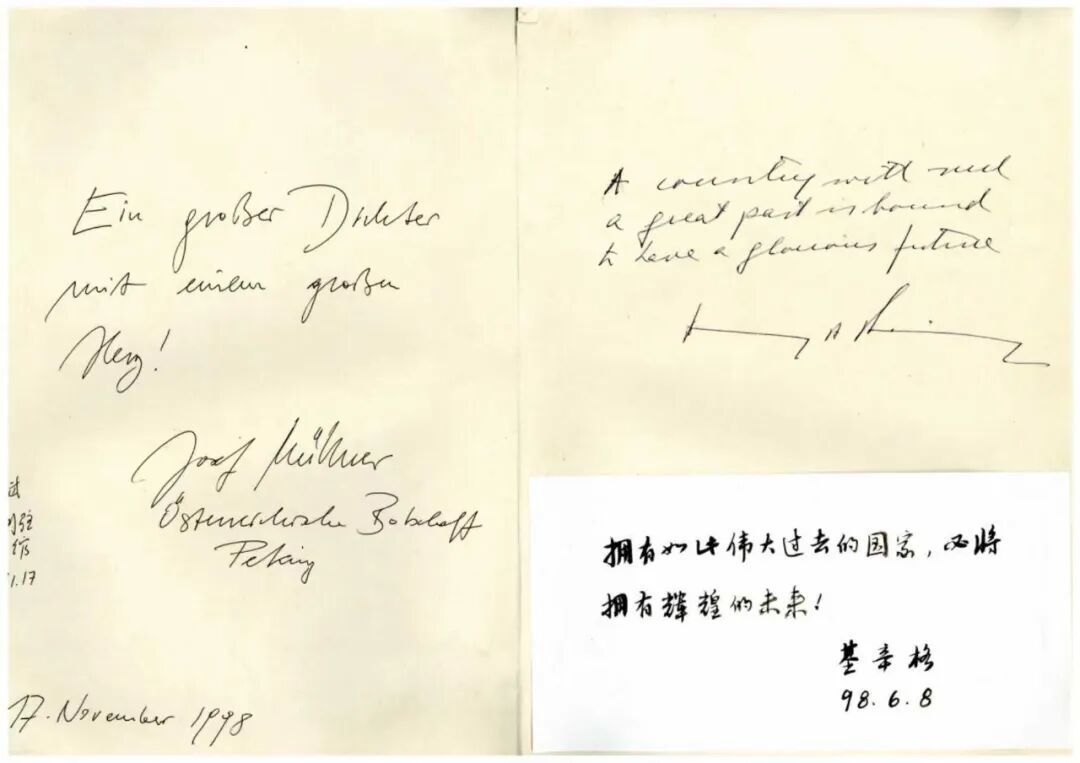 Ein großer Dichter
mit einem großen
Herz!
Josef Müllner
Österreichische Botschaft
Peking
1.17
17. November 1998
A country with such
a great past is bound
to have a glorious future
Henry A Kissinger
拥有如此伟大过去的国家，必将
拥有辉煌的未来！
基辛格
98.6.8